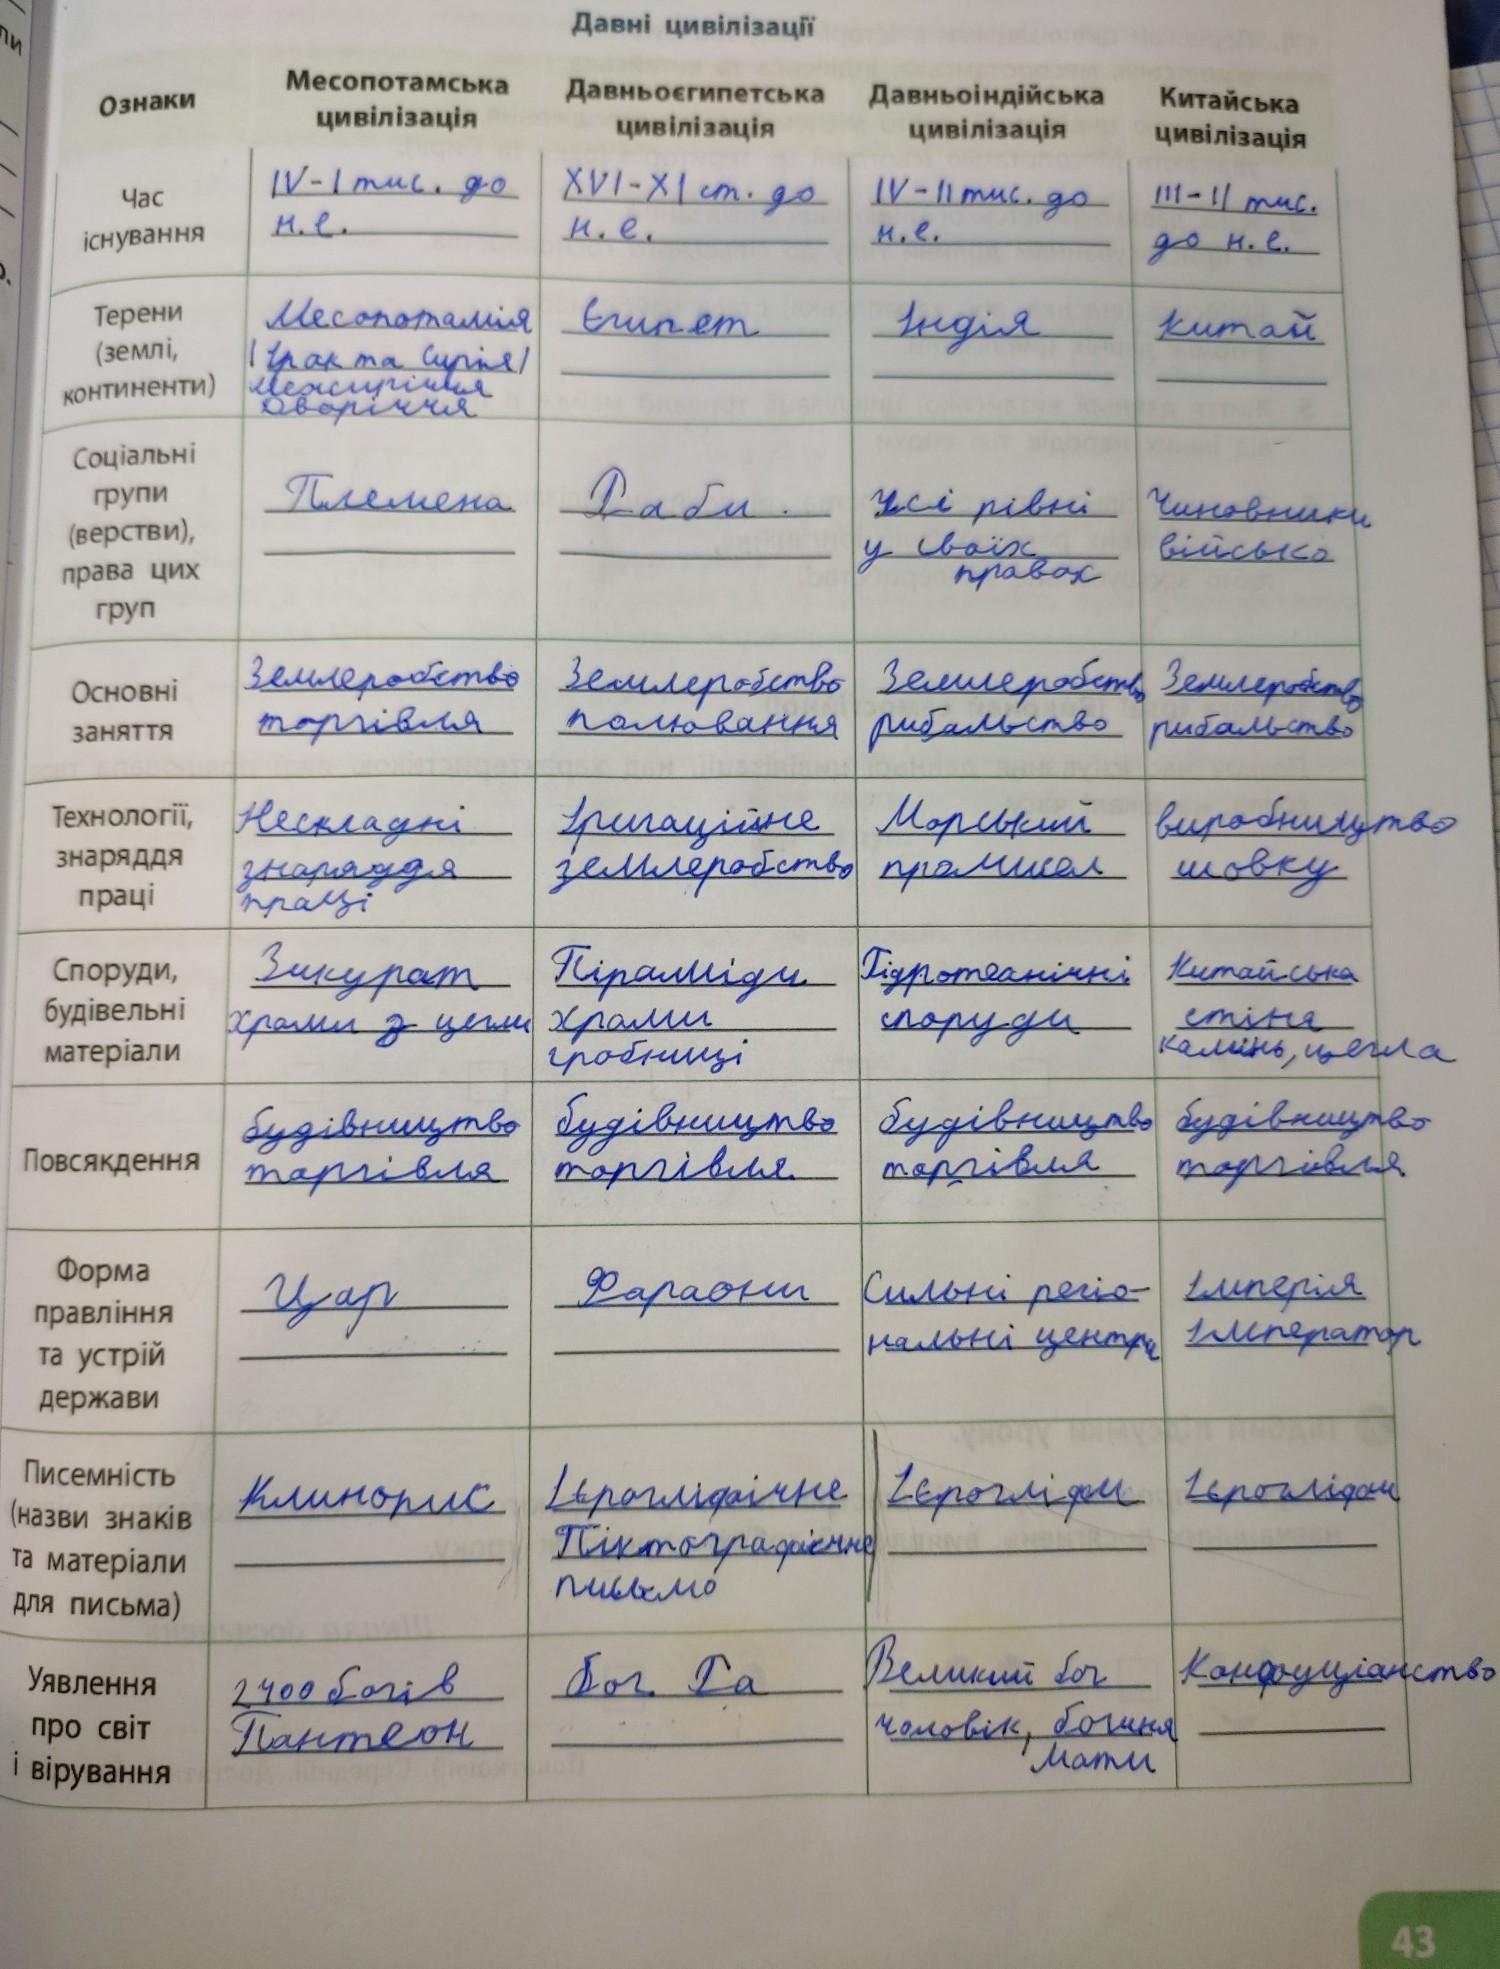 Давні цивілізації
Ознаки
Месопотамська
цивілізація
Давньоєгипетська
цивілізація
Давньоіндійська
цивілізація
Китайська
цивілізація
Час
існування
IV-I тис. до
н.е.
XVI-XI ст. до
н.е.
IV-II тис. до
н.е.
III-II тис.
до н.е.
Терени
(землі,
континенти)
Месопотамія
(Ірак та Сирія)
Межиріччя
Дворіччя
Єгипет
Індія
Китай
Соціальні
групи
(верстви),
права цих
груп
Племена
Раби.
Усі рівні
у своїх
правах
Чиновники
військо
Основні
заняття
Землеробство
торгівля
Землеробство
полювання
Землеробство
рибальство
Землеробство
рибальство
Технології,
знаряддя
праці
Нескладні
знаряддя
праці
Іригаційне
землеробство
Морський
промисел
виробництво
шовку
Споруди,
будівельні
матеріали
Зикурат
храми з цегли
Піраміди
храми
гробниці
Гідротеанічні
споруди
Китайська
стіна
камінь, цегла
Повсякдення
будівництво
торгівля
будівництво
торгівля
будівництво
торгівля
будівництво
торгівля
Форма
правління
та устрій
держави
Цар
Фараони
Сильні регіо-
нальні центри
Імперія
Імператор
Писемність
(назви знаків
та матеріали
для письма)
Клинопис
Ієрогліфічне
Піктографічне
письмо
Ієрогліфи
Ієрогліфи
Уявлення
про світ
і вірування
2400 богів
Пантеон
Бог Ра
Великий бог
чоловік, богиня
мати
Конфуціанство
43